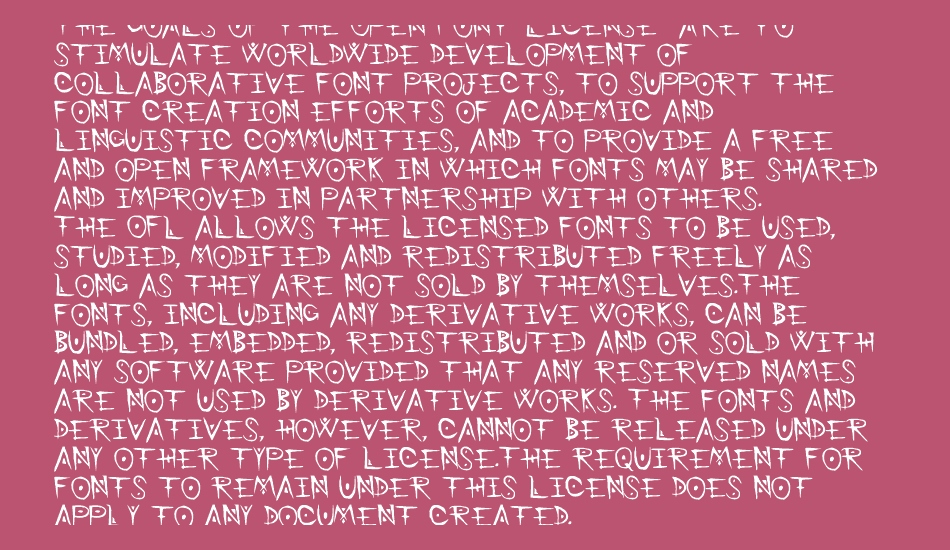 THE GOALS OF THE OPEN FONT LICENSE ARE TO
STIMULATE WORLDWIDE DEVELOPMENT OF
COLLABORATIVE FONT PROJECTS, TO SUPPORT THE
FONT CREATION EFFORTS OF ACADEMIC AND
LINGUISTIC COMMUNITIES, AND TO PROVIDE A FREE
AND OPEN FRAMEWORK IN WHICH FONTS MAY BE SHARED
AND IMPROVED IN PARTNERSHIP WITH OTHERS.
THE OFL ALLOWS THE LICENSED FONTS TO BE USED,
STUDIED, MODIFIED AND REDISTRIBUTED FREELY AS
LONG AS THEY ARE NOT SOLD BY THEMSELVES.THE
FONTS, INCLUDING ANY DERIVATIVE WORKS, CAN BE
BUNDLED, EMBEDDED, REDISTRIBUTED AND OR SOLD WITH
ANY SOFTWARE PROVIDED THAT ANY RESERVED NAMES
ARE NOT USED BY DERIVATIVE WORKS. THE FONTS AND
DERIVATIVES, HOWEVER, CANNOT BE RELEASED UNDER
ANY OTHER TYPE OF LICENSE.THE REQUIREMENT FOR
FONTS TO REMAIN UNDER THIS LICENSE DOES NOT
APPLY TO ANY DOCUMENT CREATED.